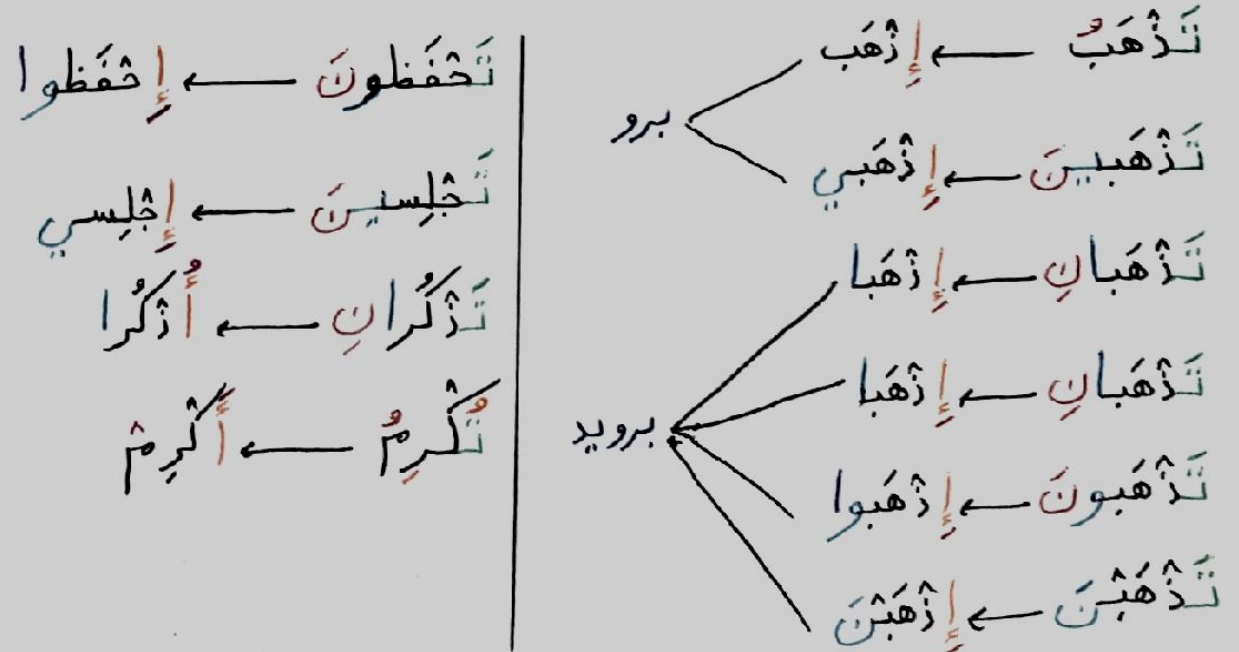 تَذْهَبُ ← إِذْهَب
برو
تَذْهَبينَ ← إِذْهَبي
تَذْهَبانِ ← إِذْهَبا
تَذْهَبانِ ← إِذْهَبا
برويد
تَذْهَبونَ ← إِذْهَبوا
تَذْهَبْنَ ← إِذْهَبْنَ
تَحْفَظونَ ← إِحْفَظوا
تَجْلِسينَ ← إِجْلِسي
تَذْكُرانِ ← أُذْكُرا
تُكْرِمُ ← أَكْرِمْ